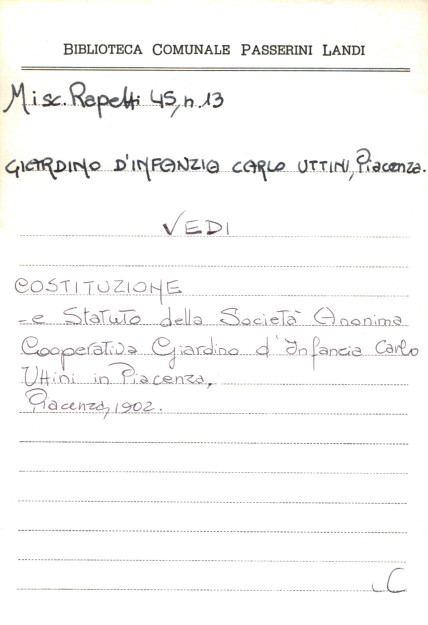 BIBLIOTECA COMUNALE PASSERINI LANDI
Misc. Rapetti 45, n. 13
GIARDINO D'INFANZIA CARLO UTTINI, Piacenza.
VEDI
COSTITUZIONE
e Statuto della Società Anonima
Cooperativa Giardino d'Infanzia Carlo
Uttini in Piacenza,
Piacenza, 1902.
C